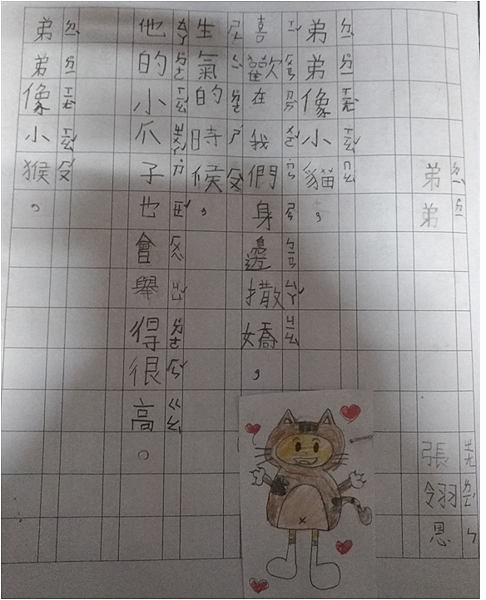 弟弟
張翎恩
弟弟像小貓，
喜歡在我們身邊撒嬌，
生氣的時候，
他的小爪子也會舉得很高。
弟弟像小猴，